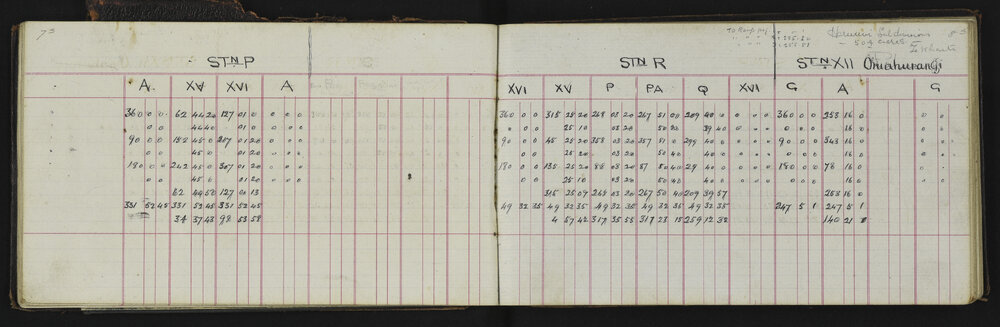 73
STN P
A XV XVI A
360 0 0 62 44 20 127 01 0 0 0 0
0 0 44 40 01 0 0 0 0
90 0 0 152 45 0 207 01 20 0 0 0
0 0 45 0 01 20 0 0 0
180 0 0 242 45 0 307 01 20 0 0 0
0 0 45 0 01 20 0 0 0
62 44 50 127 01 13
331 52 45 331 52 45 331 52 45
34 37 43 98 53 58
STN R STN XII Omahurangi
XVI XV P PA Q XVI G A G
360 0 0 315 25 20 268 03 20 267 51 00 209 40 0 0 0 0 360 0 0 253 16 0
0 0 0 25 10 03 20 50 20 39 40 0 0 0 0 0 16 0
90 0 0 45 25 20 358 03 20 357 51 0 299 40 0 0 0 0 90 0 0 343 16 0
0 0 25 20 03 20 50 40 40 0 0 0 0 0 0 16 0
180 0 0 135 25 20 88 03 20 87 50 40 29 40 0 0 0 0 180 0 0 73 16 0
0 0 25 10 03 20 50 40 40 0 0 0 0 0 0 16 0
315 25 07 268 03 20 267 50 40 209 39 57 253 16 0
49 32 35 49 32 35 49 32 35 49 32 35 49 32 35 247 5 1 247 5 1
4 57 42 317 35 55 317 23 15 259 12 32 140 21